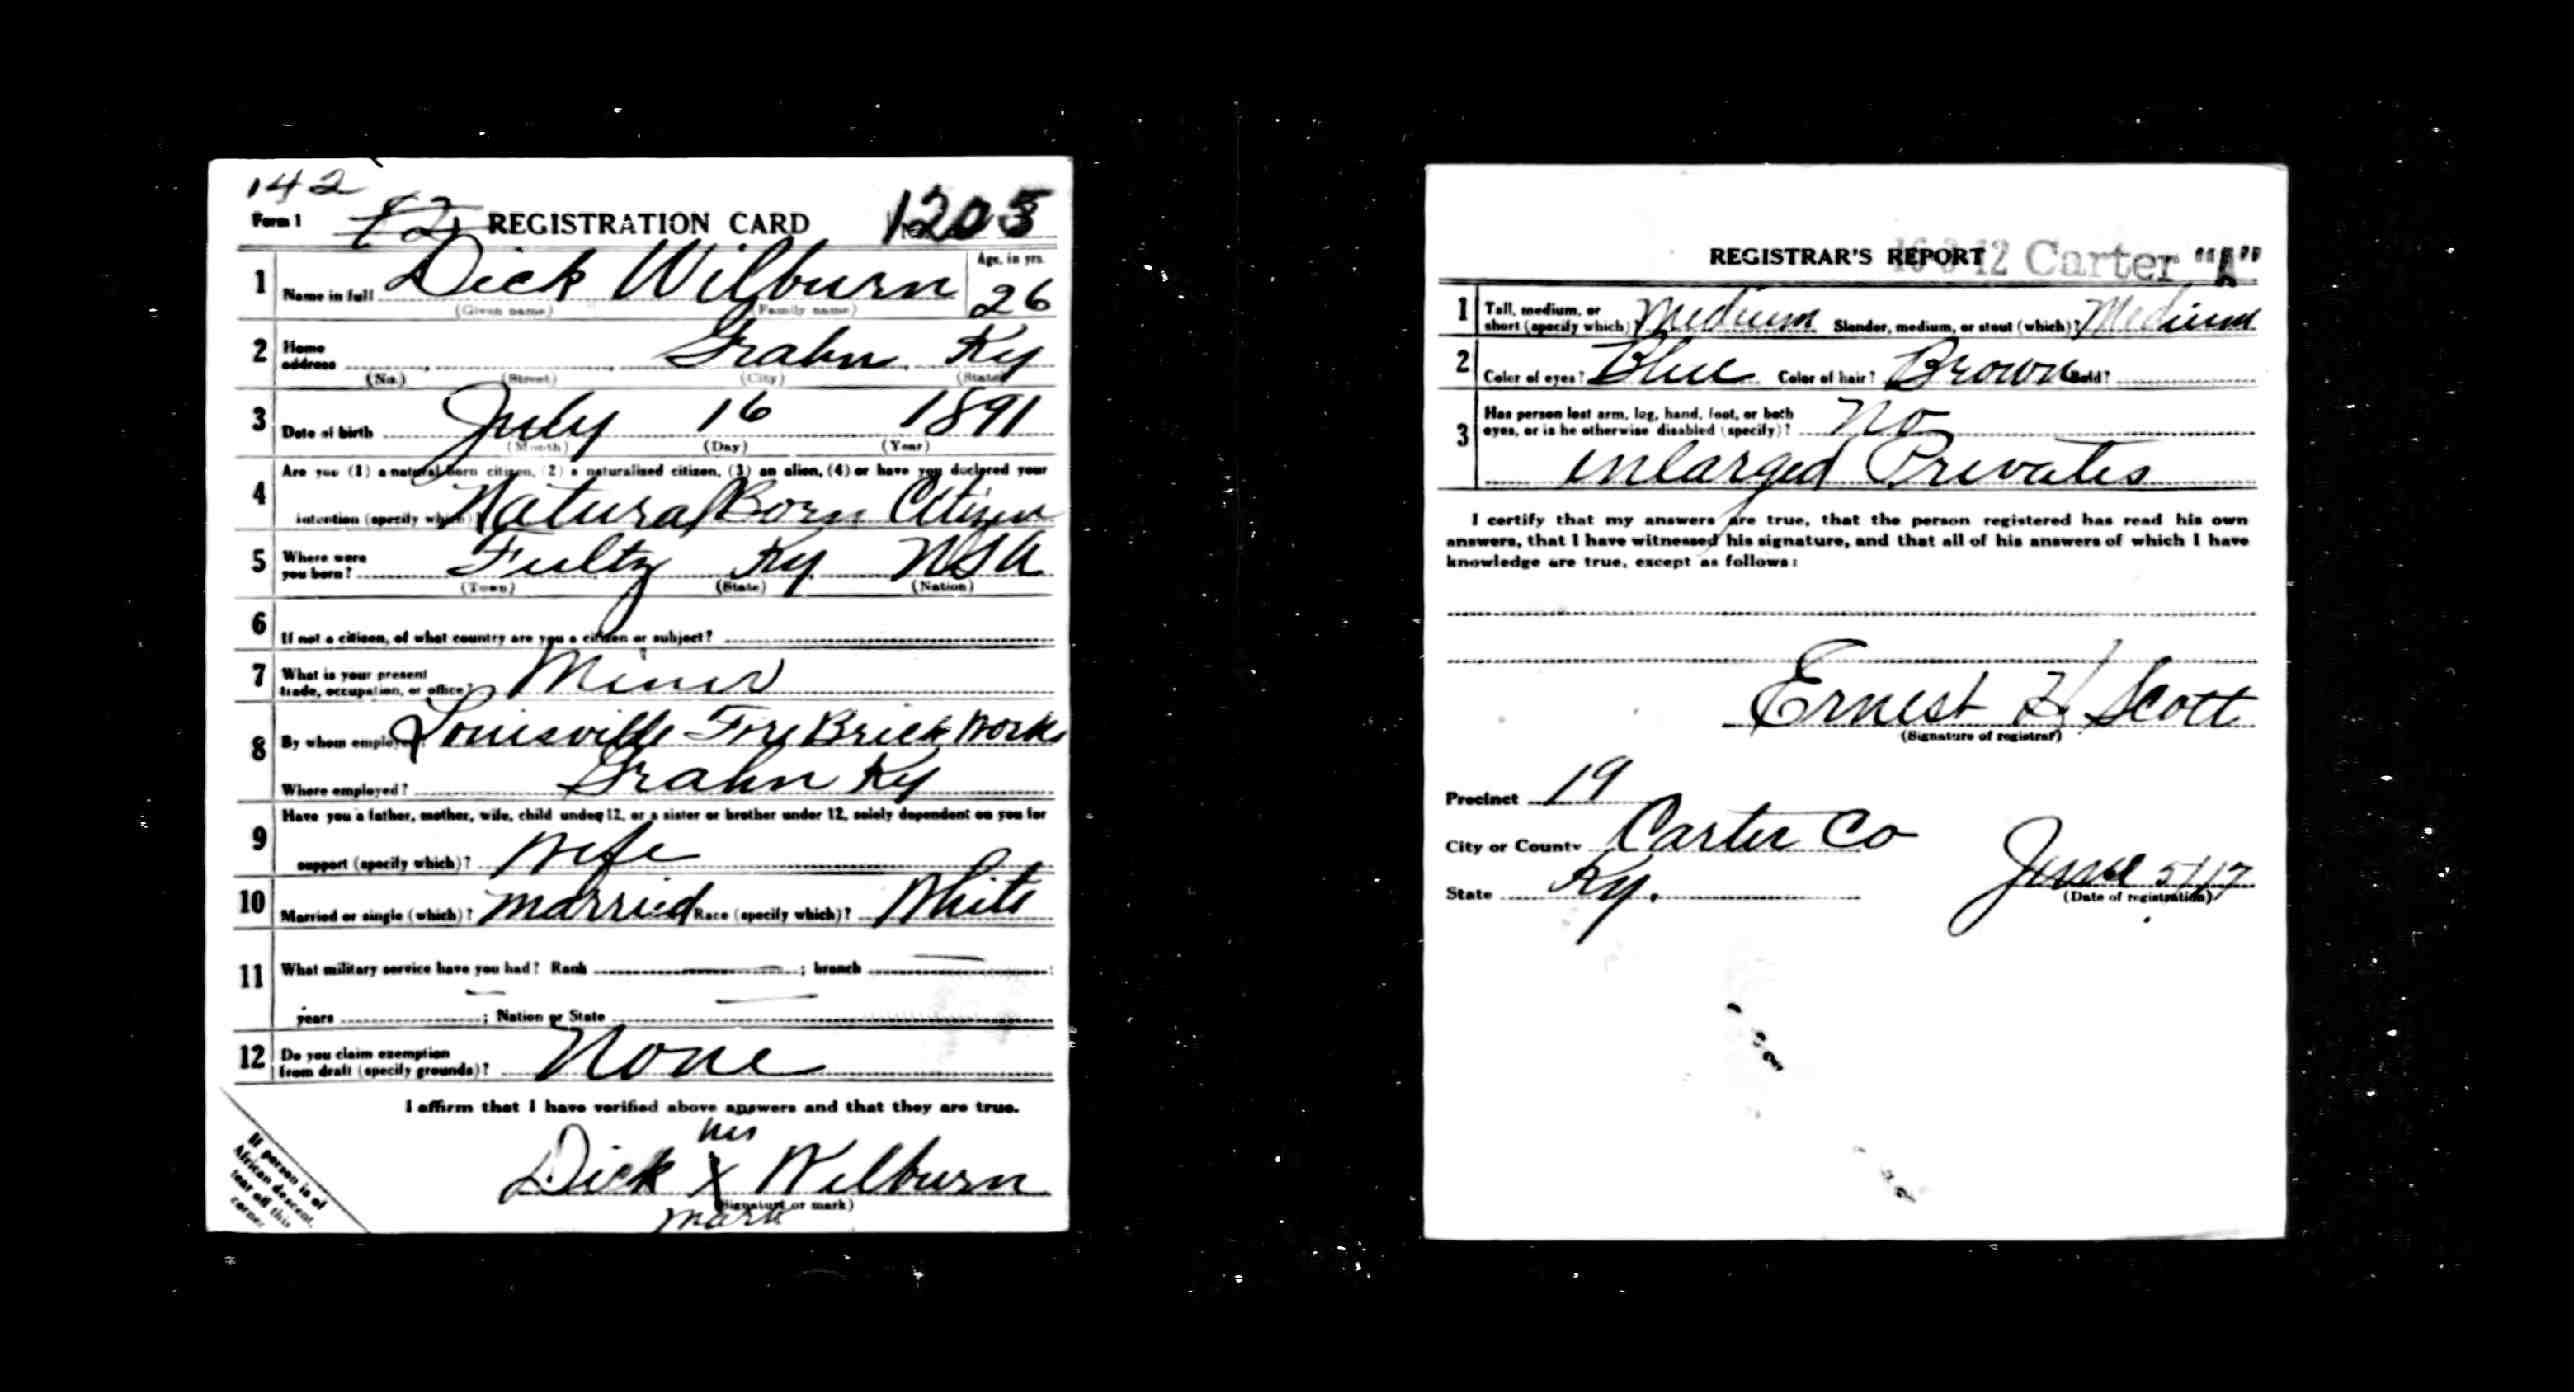 142
Form 1 72 REGISTRATION CARD No. 1205
1 Name in full Dick Wilburn Age, in yrs. 26
(Given name) (Family name)
2 Home address Grahn Ky
(No.) (Street) (City) (State)
3 Date of birth July 16 1891
(Month) (Day) (Year)
4 Are you (1) a natural-born citizen, (2) a naturalized citizen, (3) an alien, (4) or have you declared your
intention (specify which)? Natural Born Citizen
5 Where were you born? Fultz Ky USA
(Town) (State) (Nation)
6 If not a citizen, of what country are you a citizen or subject?
7 What is your present trade, occupation, or office? Miner
8 By whom employed? Louisville Fire Brick Works
Where employed? Grahn Ky
9 Have you a father, mother, wife, child under 12, or a sister or brother under 12, solely dependent on you for
support (specify which)? Wife
10 Married or single (which)? Married Race (specify which)? White
11 What military service have you had? Rank ; branch
years ; Nation or State
12 Do you claim exemption from draft (specify grounds)? None
I affirm that I have verified above answers and that they are true.
his
Dick X Wilburn
(Signature or mark)
mark
If person is of
African descent,
tear off this
corner
REGISTRAR'S REPORT 16-3-12 Carter "A"
1 Tall, medium, or short (specify which)? Medium Slender, medium, or stout (which)? Medium
2 Color of eyes? Blue Color of hair? Brown Bald?
3 Has person lost arm, leg, hand, foot, or both
eyes, or is he otherwise disabled (specify)? No
enlarged Privates
I certify that my answers are true, that the person registered has read his own
answers, that I have witnessed his signature, and that all of his answers of which I have
knowledge are true, except as follows:
Ernest H Scott
(Signature of registrar)
Precinct 19
City or County Carter Co
State Ky. June 5/17
(Date of registration)